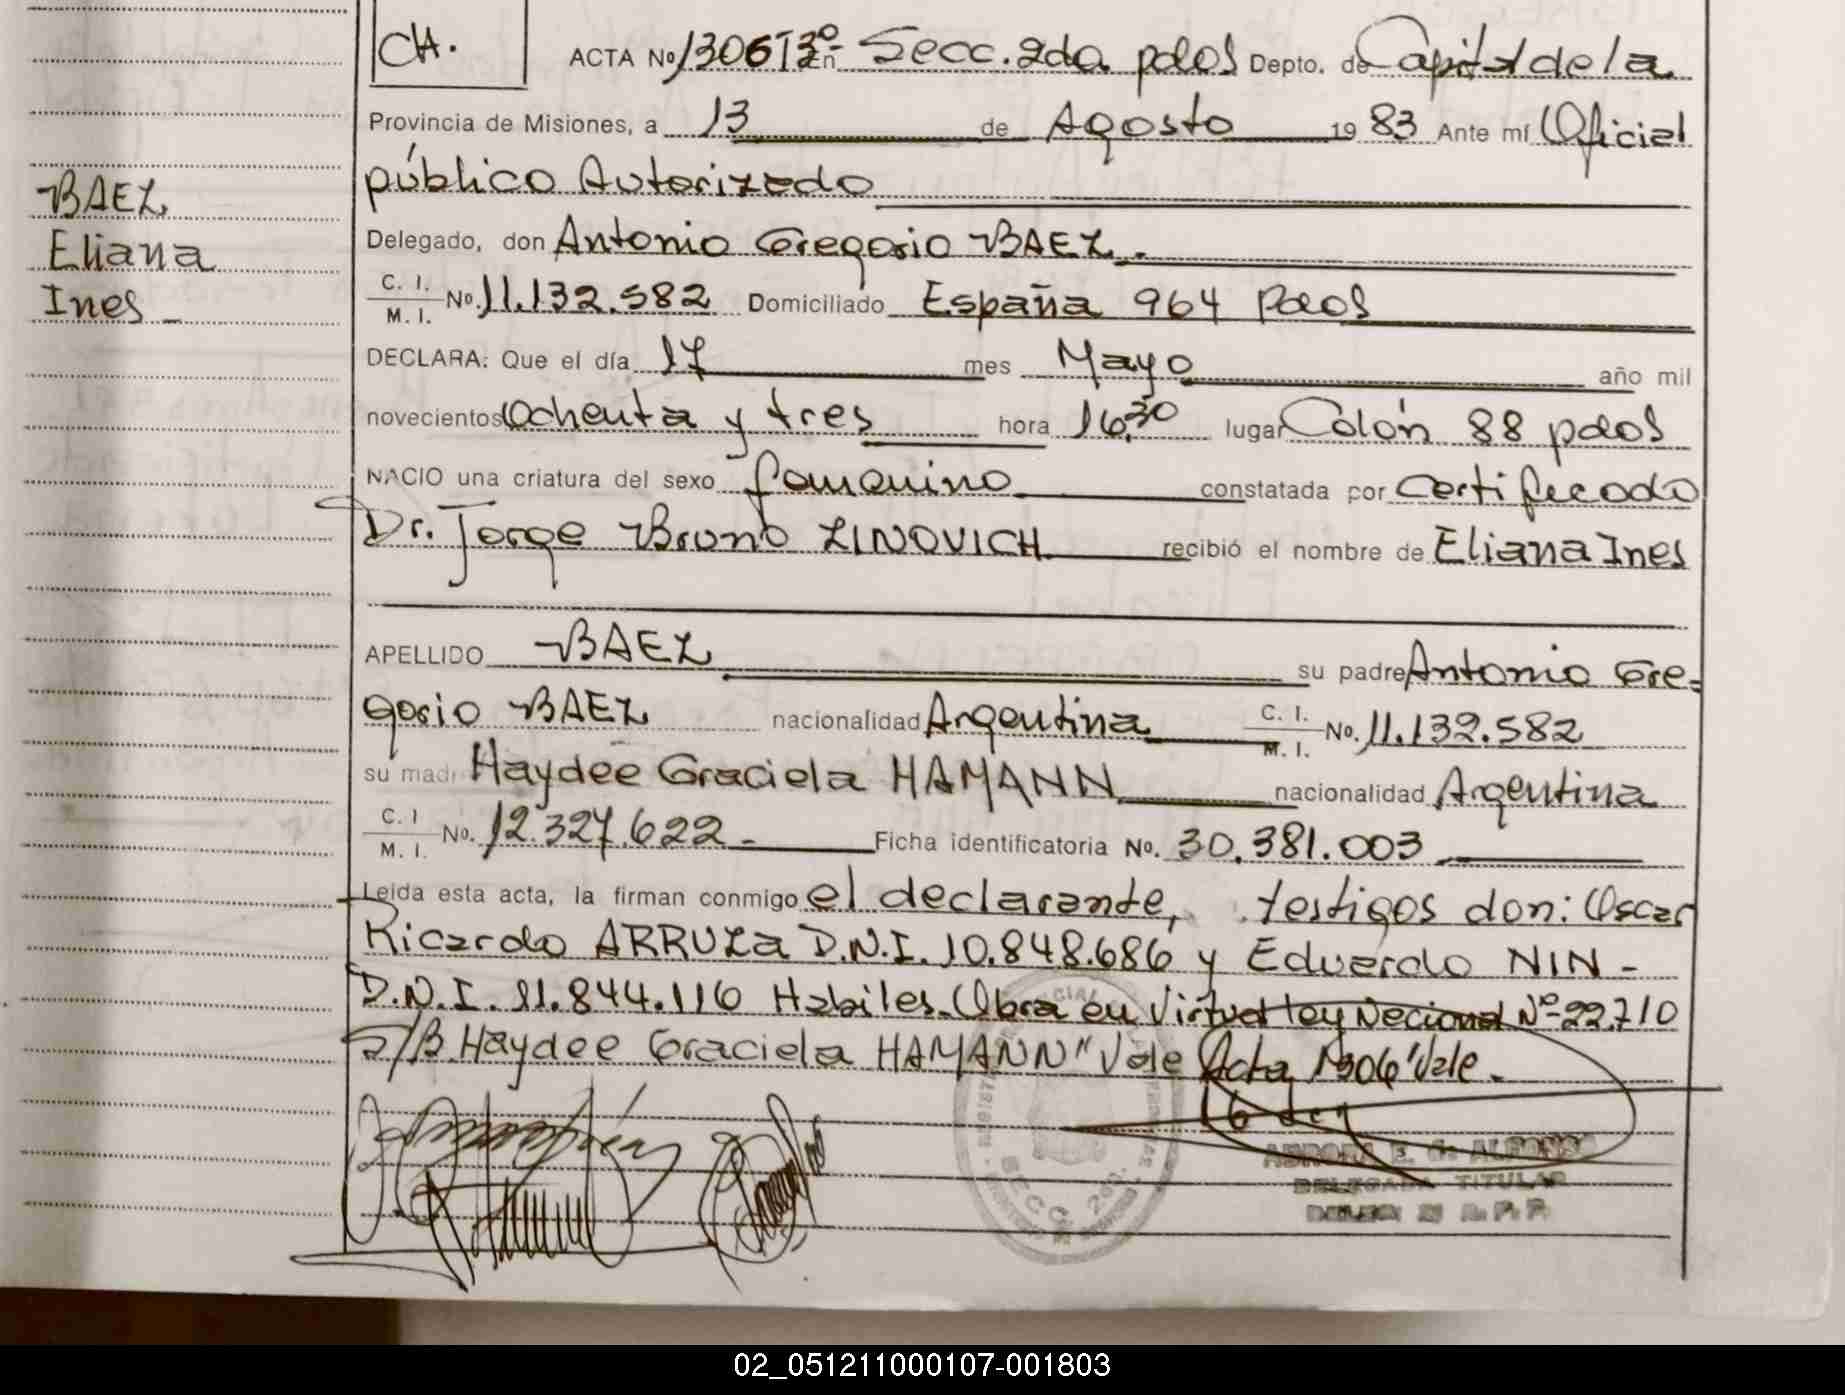 CH.
ACTA Nº 1306 T3º en Secc. 2da. pdas Depto. de Capital de la
Provincia de Misiones, a 13 de Agosto 19 83 Ante mí Oficial
público Autorizado
BAEZ
Eliana
Ines -
Delegado, don Antonio Gregorio BAEZ.
C. I.
M. I. No. 11.132.582 Domiciliado España 964 Pdas
DECLARA: Que el día 17 mes Mayo año mil
novecientos Ochenta y tres hora 16,30 lugar Colón 88 pdas
NACIO una criatura del sexo femenino constatada por Certificado
Dr. Jorge Bruno ZINOVICH recibió el nombre de Eliana Ines
APELLIDO BAEZ su padre Antonio Gre-
gorio BAEZ nacionalidad Argentina C. I.
M. I. No. 11.132.582
su mad Haydee Graciela HAMANN nacionalidad Argentina
C. I
M. I. No. 12.327.622 - Ficha identificatoria No. 30.381.003
Leida esta acta, la firman conmigo el declarante, testigos don: Oscar
Ricardo ARRUZA D.N.I. 10.848.686 y Eduardo NIN -
D.N.I. 11.844.116 Habiles. Obra en Virtud Ley Nacional Nº 22.710
S/B. Haydee Graciela HAMANN" Vale Acta 1306 "Vale -
SECC. 2da.
E. de ALFONSO
DELEGADA TITULAR
R. P. P.
02_051211000107-001803